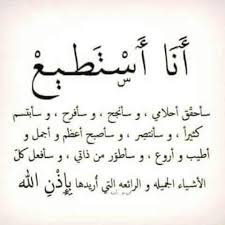 أَنَا أَسْتَطِيعْ
سأحقق أحلامي ، و سأنجح ، و سأفرح ، و سأبتسم
كثيراً ، و سأنتصر ، و سأصبح أعظم و أجمل و
أطيب و أروع ، و سأطوّر من ذاتي ، و سأفعل كلّ
الأشياء الجميله و الرائعه التي أريدها بإِذْنِ الله